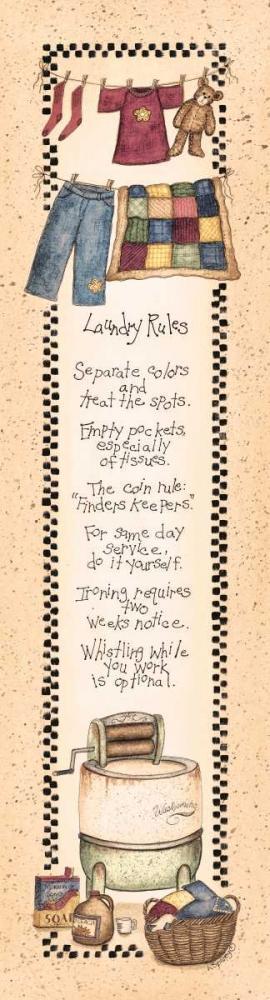 Laundry Rules
Separate colors
and
treat the spots.
Empty pockets,
especially
of tissues.
The coin rule:
"Finders Keepers."
For same day
service,
do it yourself.
Ironing requires
two
weeks notice.
Whistling while
you work
is optional.
SOAP